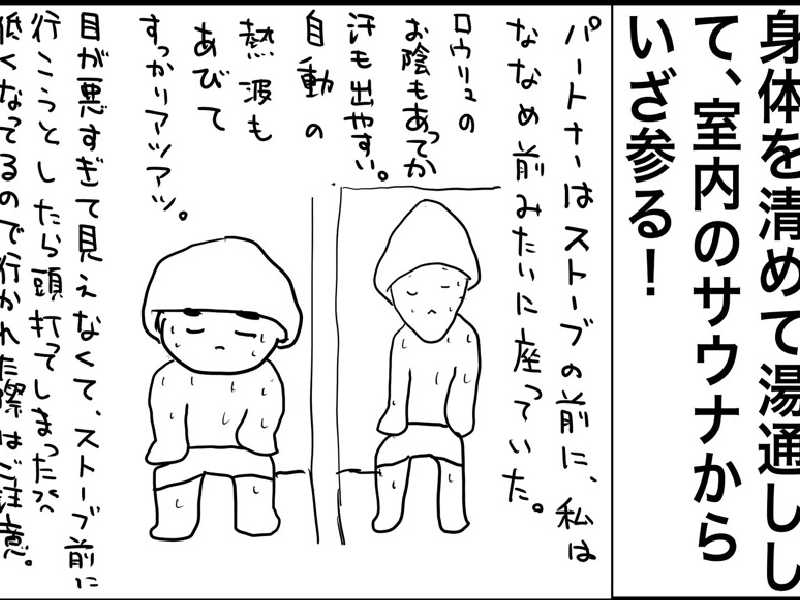 身体を清めて湯通しし
て、室内のサウナから
いざ参る！
パートナーはストーブの前に、私は
ななめ前みたいに座っていた。
ロウリュの
お陰もあってか
汗も出やすい。
自動の
熱波も
あびて
すっかりアツアツ。
目が悪すぎて見えなくて、ストーブ前に
行こうとしたら頭打ってしまったが
低くなってるので行かれた際はご注意。